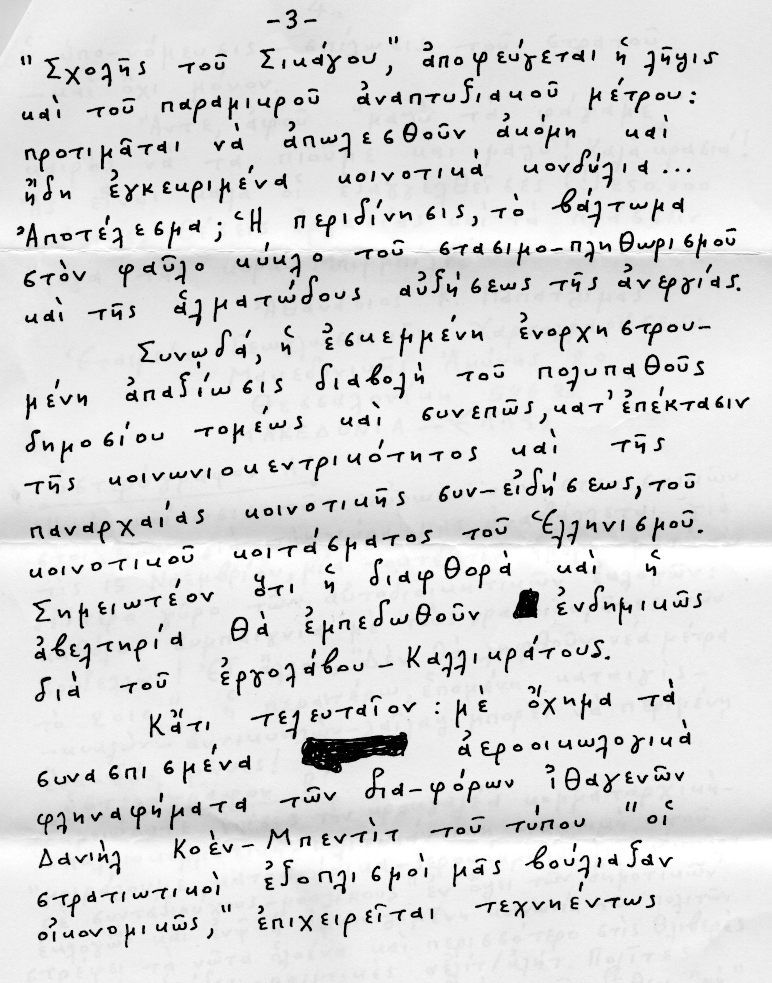 -3-
"Σχολῆς τοῦ Σικάγου," ἀποφεύγεται ἡ λῆψις
καὶ τοῦ παραμικροῦ ἀναπτυξιακοῦ μέτρου:
προτιμᾶται νὰ ἀπωλεσθοῦν ἀκόμη καὶ
ἤδη ἐγκεκριμένα κοινοτικά κονδύλια...
Ἀποτέλεσμα; Ἡ περιδίνησις, τὸ βάλτωμα
στὸν φαῦλο κύκλο τοῦ στασιμο-πληθωρισμοῦ
καὶ τῆς ἁλματώδους αὐξήσεως τῆς ἀνεργίας.
Συνῳδά, ἡ ἐσκεμμένη ἐνορχηστρου-
μένη ἀπαξίωσις διαβολὴ τοῦ πολυπαθοῦς
δημοσίου τομέως καὶ συνεπῶς, κατ' ἐπέκτασιν
τῆς κοινωνιοκεντρικότητος καὶ τῆς
παναρχαίας κοινοτικῆς συν-ειδήσεως, τοῦ
κοινοτικοῦ κοιτάσματος τοῦ Ἑλληνισμοῦ.
Σημειωτέον ὅτι ἡ διαφθορὰ καὶ ἡ
ἀβελτηρία θὰ ἐμπεδωθοῦν ἐνδημικῶς
διὰ τοῦ ἐργολάβου - Καλλικράτους.
Κἄτι τελευταῖον: μὲ ὄχημα τὰ
συνασπισμένα ἀεροοικωλογικὰ
φληναφήματα τῶν δια-φόρων ἰθαγενῶν
Δανιὴλ Κοὲν-Μπεντὶτ τοῦ τύπου "οἱ
στρατιωτικοὶ ἐξοπλισμοὶ μᾶς βούλιαξαν
οἰκονομικῶς," ἐπιχειρεῖται τεχνηέντως